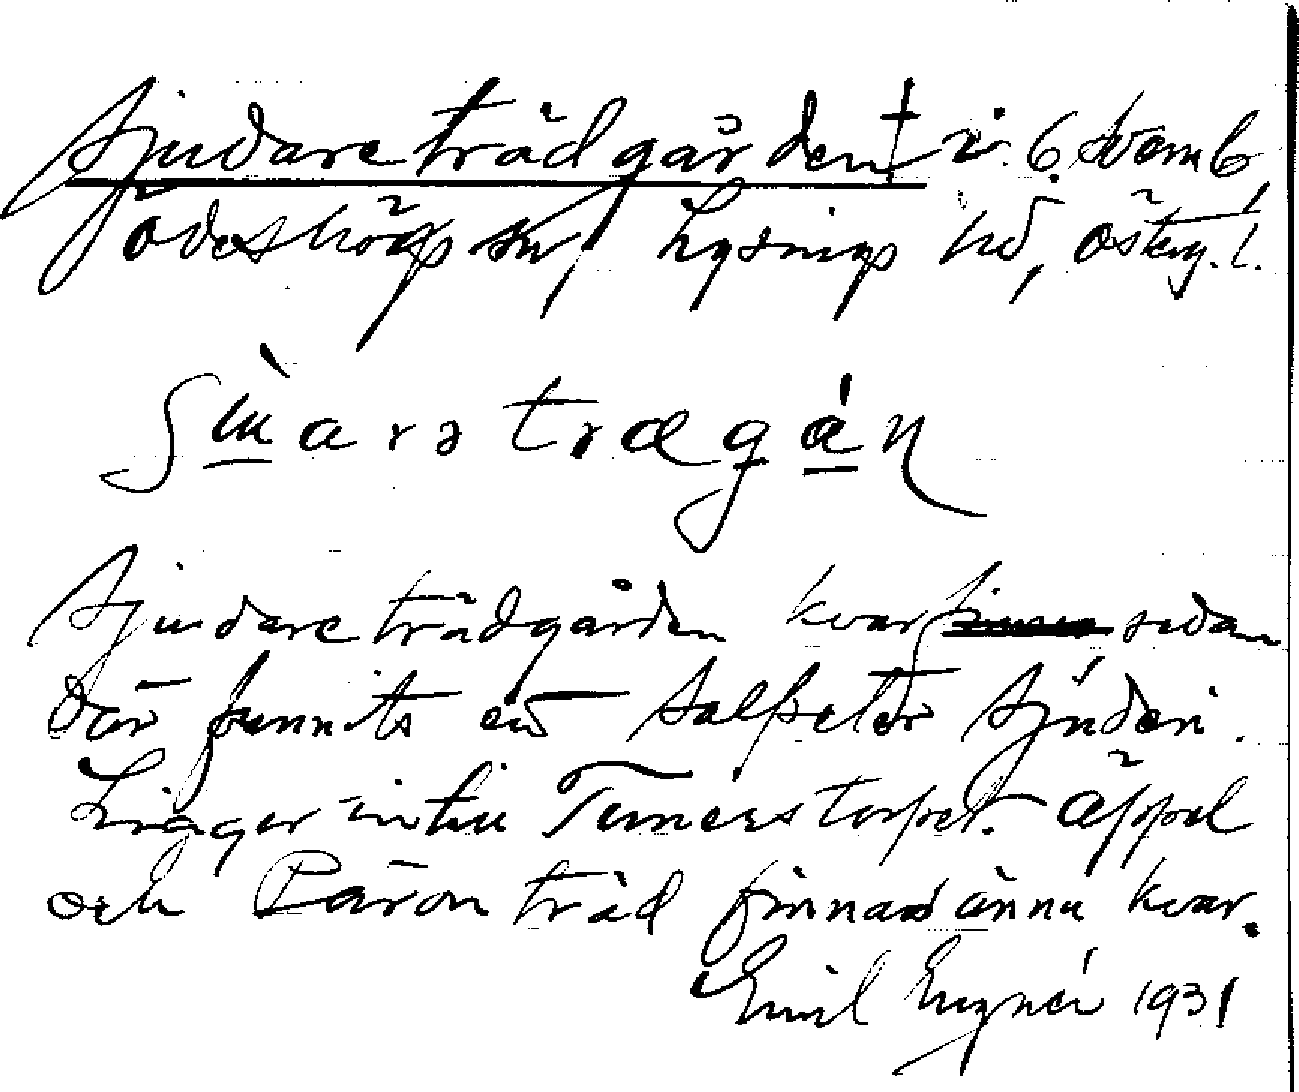 Sjudareträdgården † i 6. Svemb,
Ödeshögs sn, Lysings hd, Österg. l.
Sjudareträdgården kvar sedan
där funnits ett Salpeter Sjuderi.
Ligger intill Turnérstorpet. Äppel
och Päronträd finnas ännu kvar.
Emil 1931